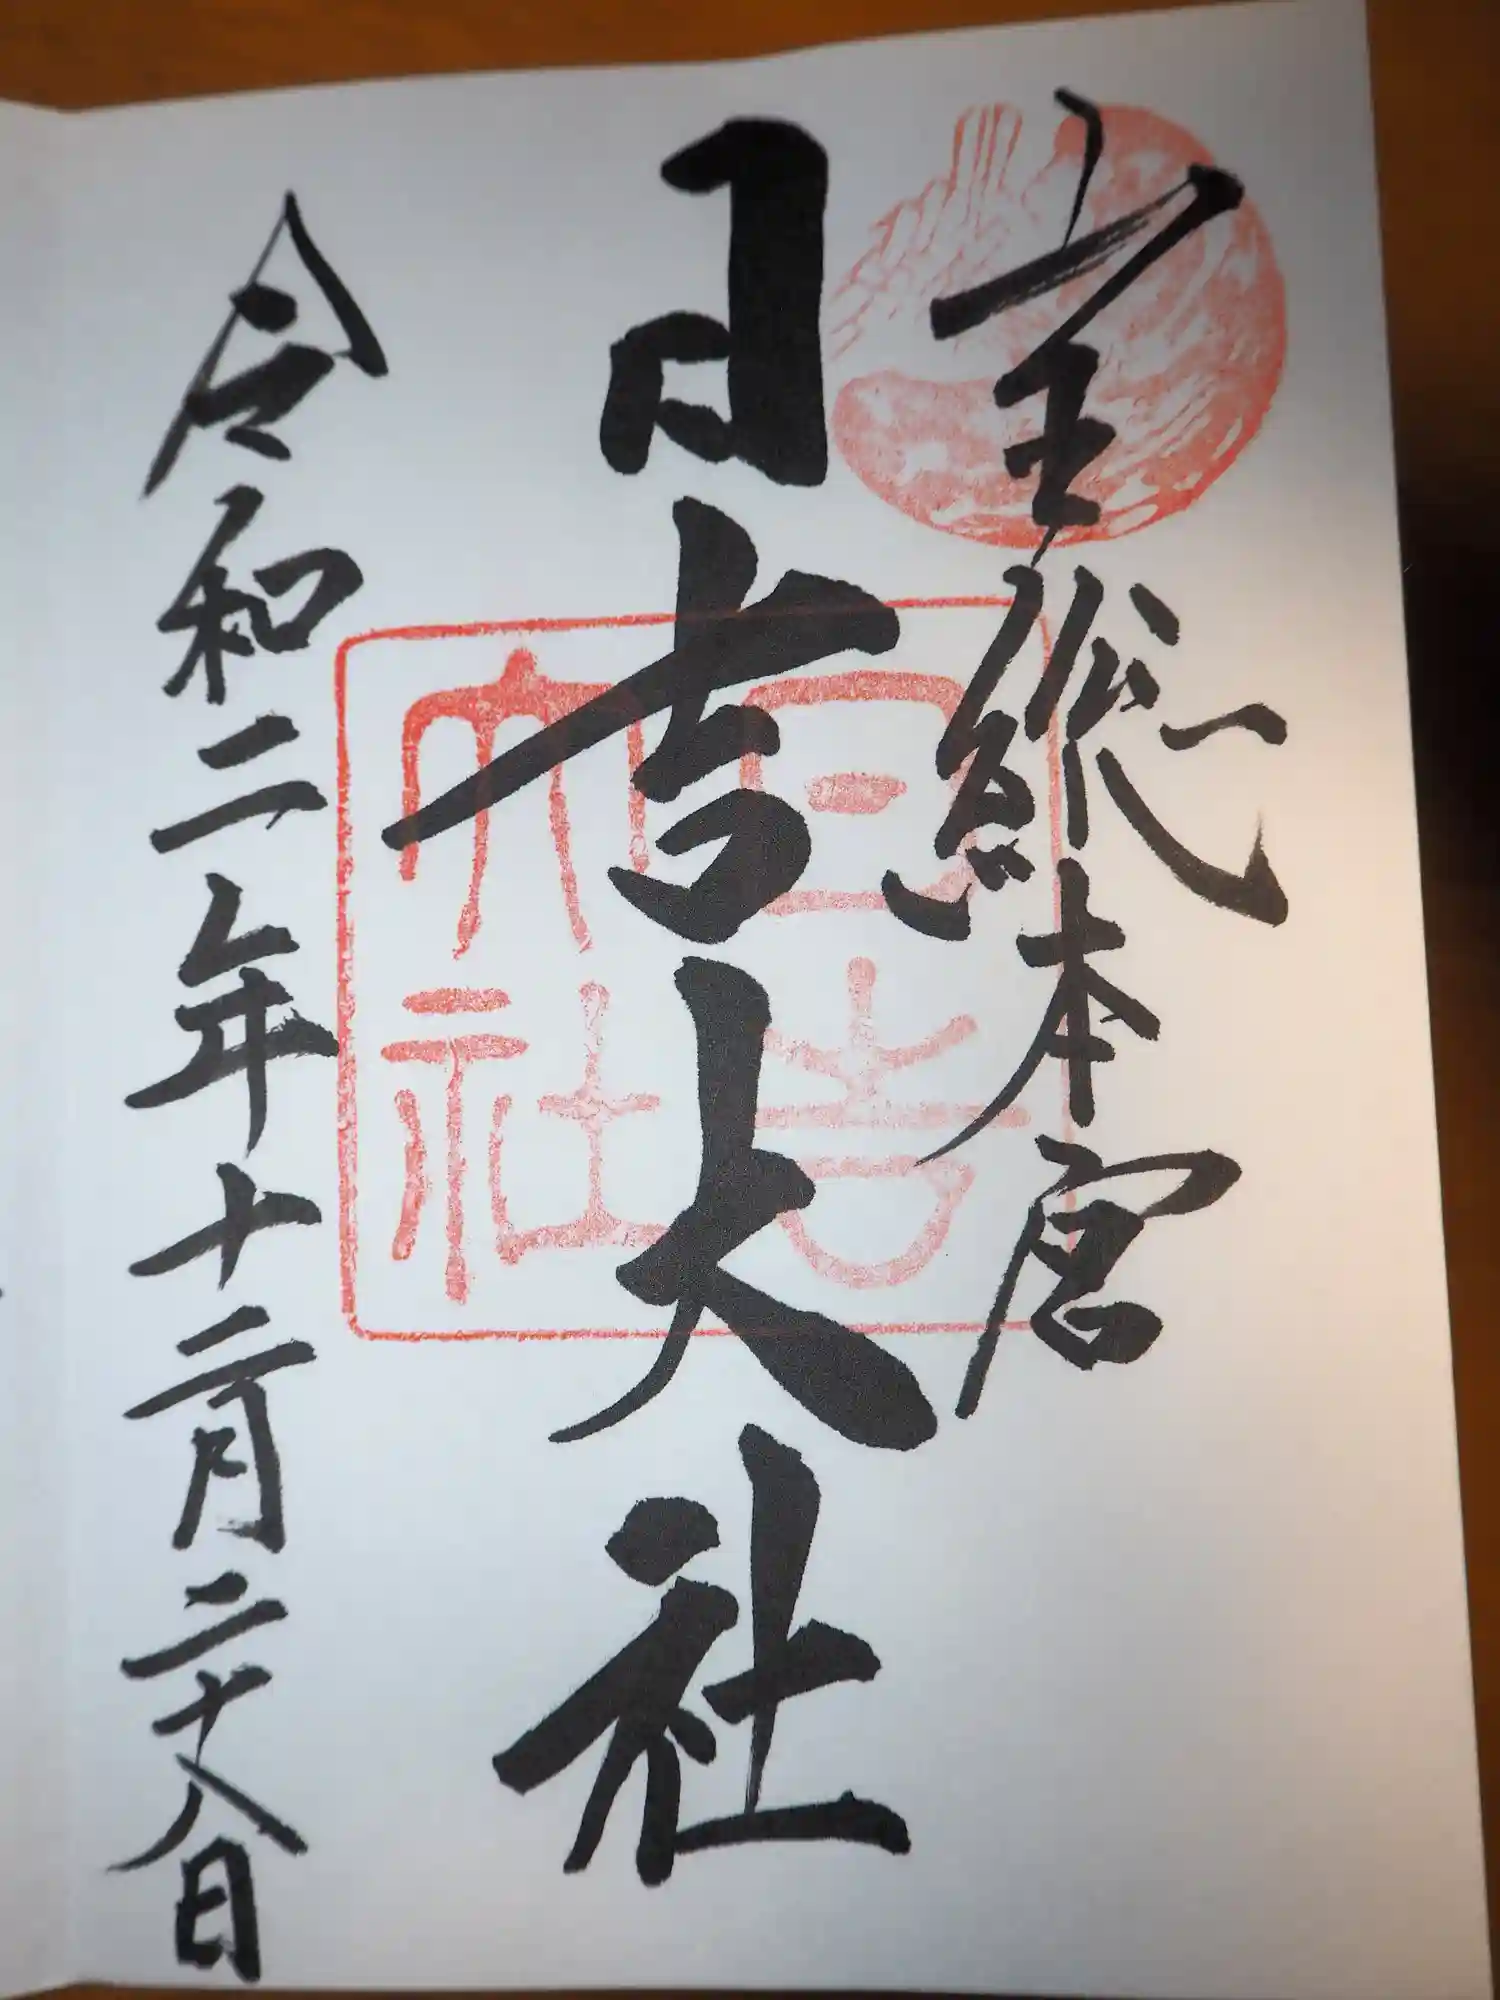 全総本宮
日吉大社
日吉
大社
令和二年十二月二十八日